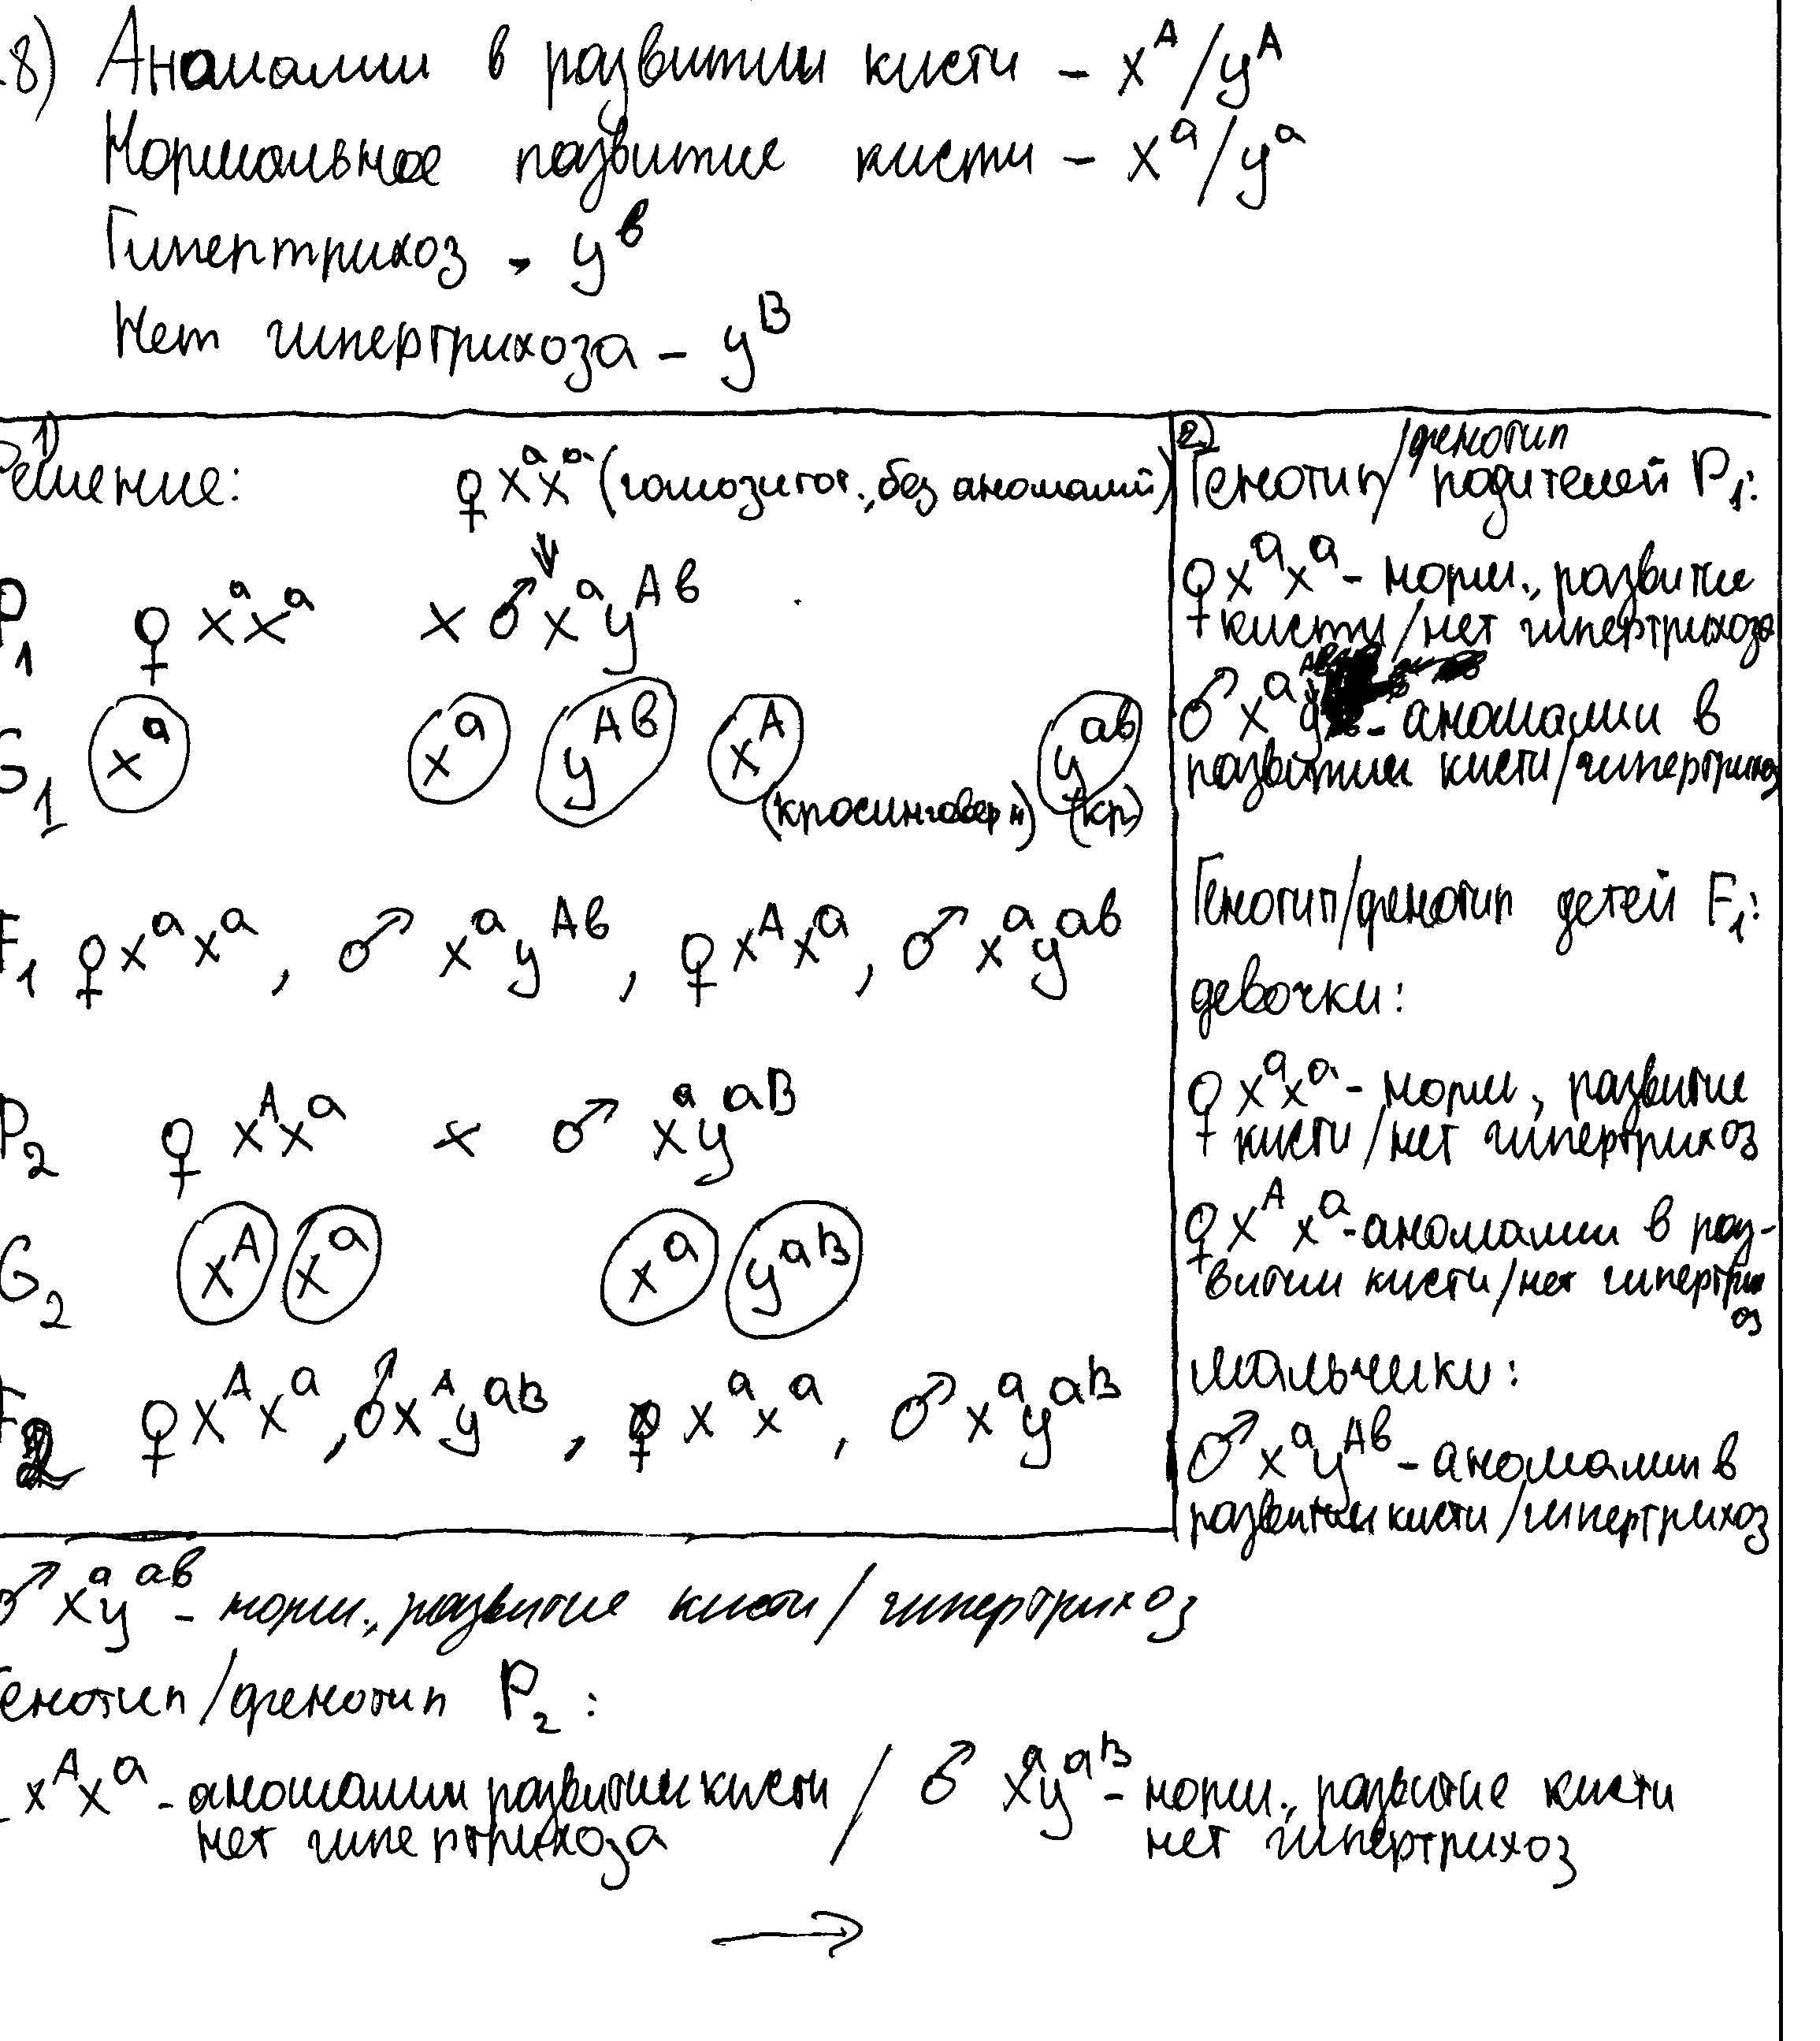 .8) Аномалии в развитии кисти - x^A/y^A
Нормальное развитие кисти - x^a/y^a
Гипертрихоз - y^в
Нет гипертрихоза - y^B
1)
Решение: ♀ x^a x^a (гомозигот., без аномалий)
P1 ♀ x^a x^a × ♂ x^a y^Aв
G1 x^a x^a y^Aв x^A y^aв
(кросинговерн) (кр)
F1 ♀ x^a x^a, ♂ x^a y^Aв, ♀ x^A x^a, ♂ x^a y^aв
P2 ♀ x^A x^a × ♂ x^a y^aB
G2 x^A x^a x^a y^aB
F2 ♀ x^A x^a, ♂ x^A y^aB, ♀ x^a x^a, ♂ x^a y^aB
2)
Генотип/фенотип родителей P1:
♀ x^a x^a - норм., развитие
кисти/нет гипертрихоза
♂ x^a y - аномалии в
развитии кисти/гипертрихоз
Генотип/фенотип детей F1:
девочки:
♀ x^a x^a - норм, развитие
кисти/нет гипертрихоз
♀ x^A x^a - аномалии в раз-
витии кисти/нет гипертрих
оз
мальчики:
♂ x^a y^Aв - аномалии в
развитии кисти/гипертрихоз
♂ x^a y^aв - норм., развитие кисти/гипертрихоз
Генотип/фенотип P2:
x^A x^a - аномалии развитии кисти / ♂ x^a y^aB - норм., развитие кисти
нет гипертрихоза нет гипертрихоз
→